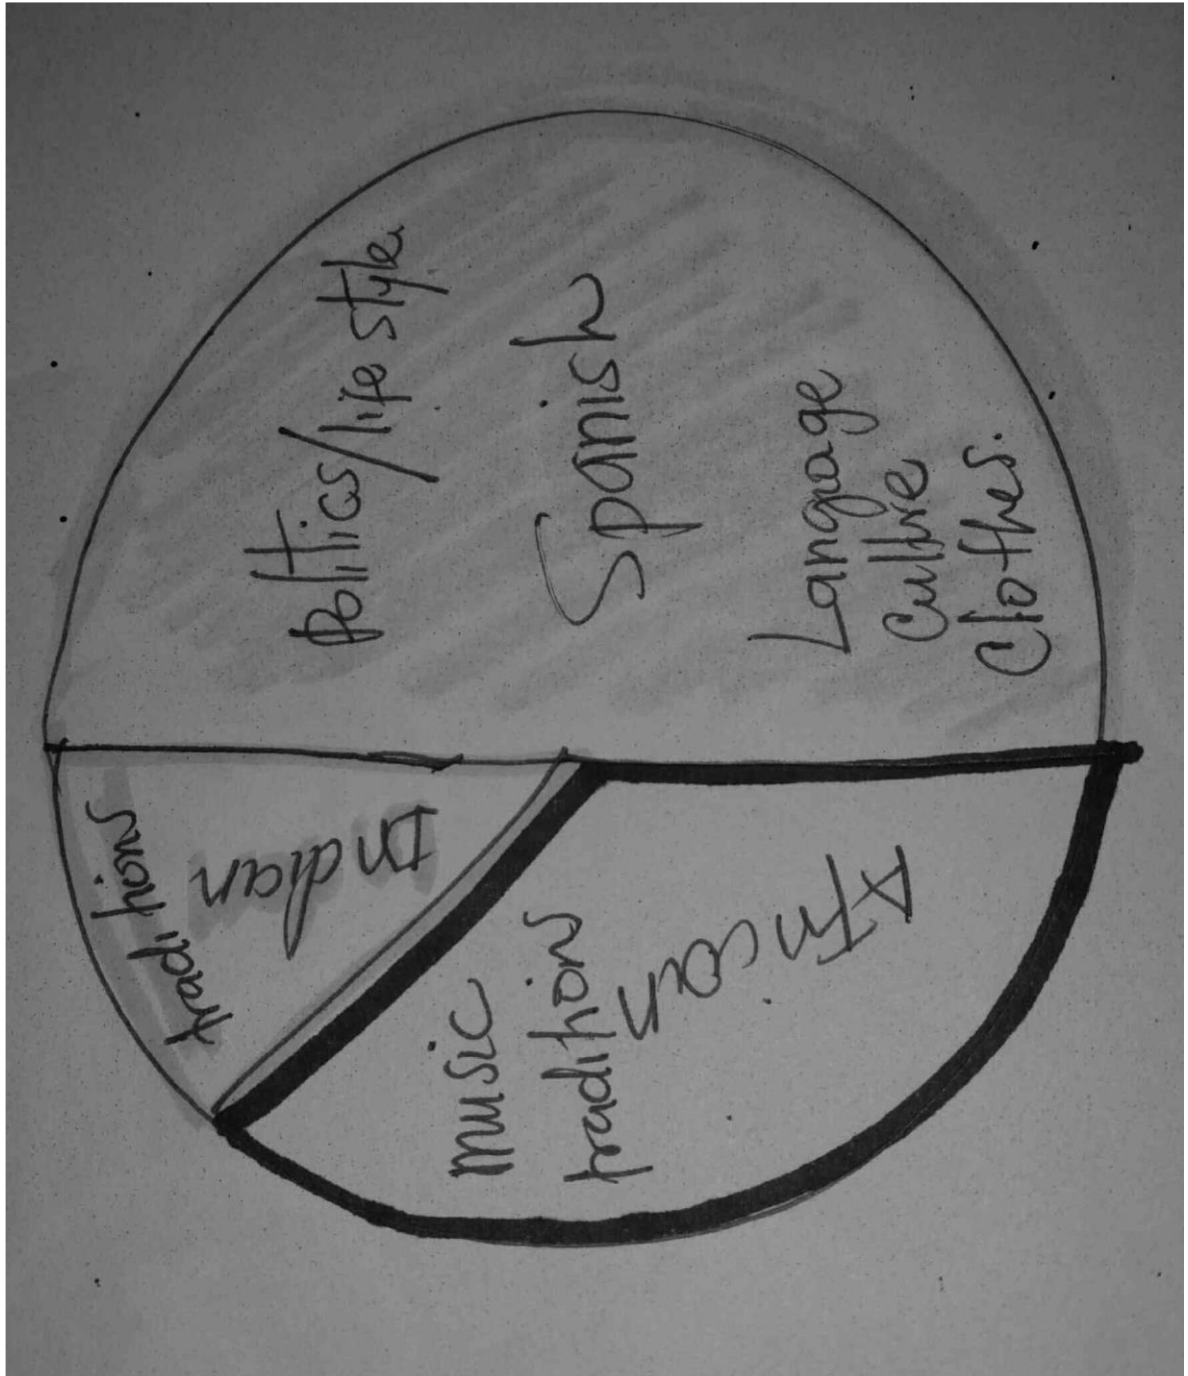 Politics/life style
Spanish
Language
Culture
Clothes.
traditions
Indian
music
traditions
African